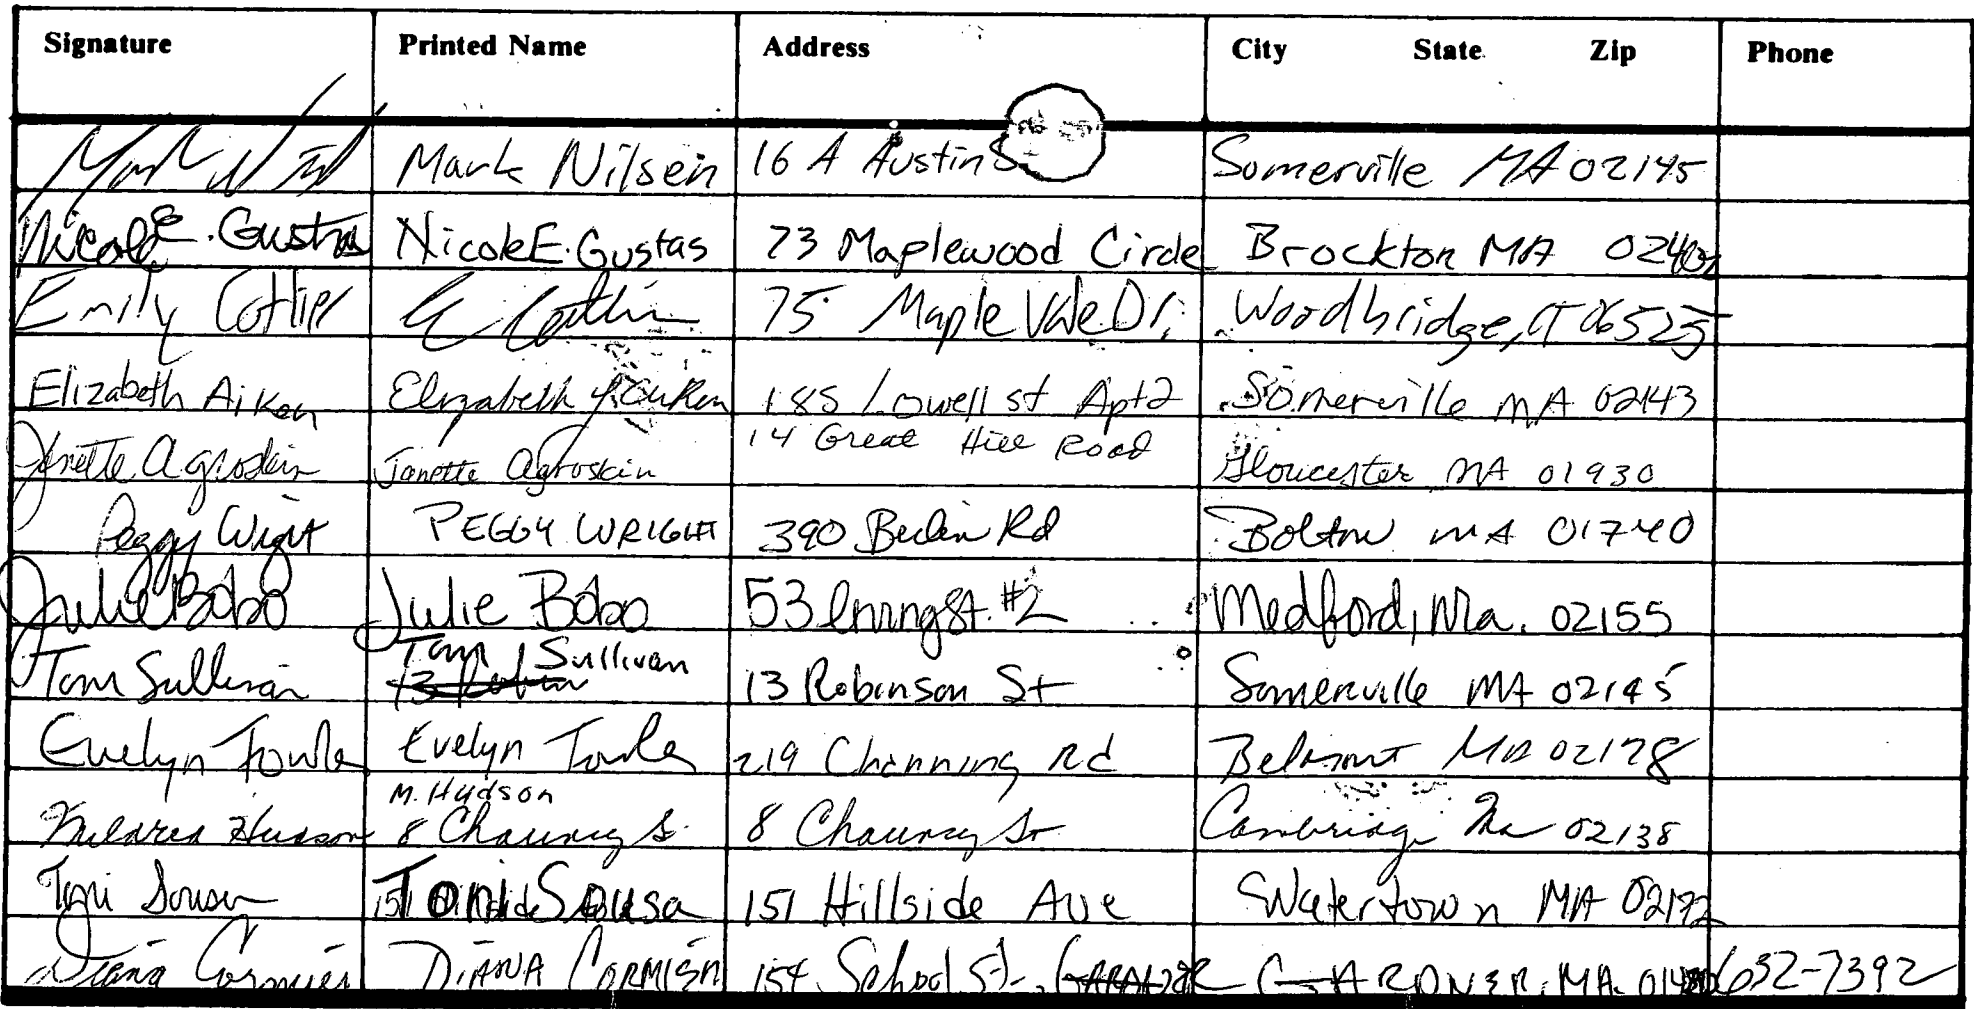 Signature Printed Name Address City State Zip Phone
Mark Nilsen 16 A Austin Somerville MA 02145
Nicole E. Gustas Nicole E. Gustas 73 Maplewood Circle Brockton MA
Emily 75 Maple Vale Dr. Woodbridge, CT 06525
Elizabeth Aiken Elizabeth 185 Lowell st Apt 2 Somerville MA 02143
14 Great Hill Road
Janette Agroskin Janette Agroskin Gloucester MA 01930
Peggy Wright PEGGY WRIGHT 390 Rd Bolton MA 01740
Julie Bobo Julie Bobo 53 St. #2 Medford, Ma. 02155
Tom Sullivan
Tom Sullivan 13 Robinson St Somerville MA 02145
Evelyn Towle Evelyn Towle 219 Channing Rd Belmont MA 02178
M. Hudson
Mildred Hudson 8 Chauncy St 8 Chauncy St Cambridge Ma 02138
Toni Sousa Toni Sousa 151 Hillside Ave Watertown MA 02172
Diana Cormier DIANA CORMIER 154 School St. GARDNER, MA. 632-7392